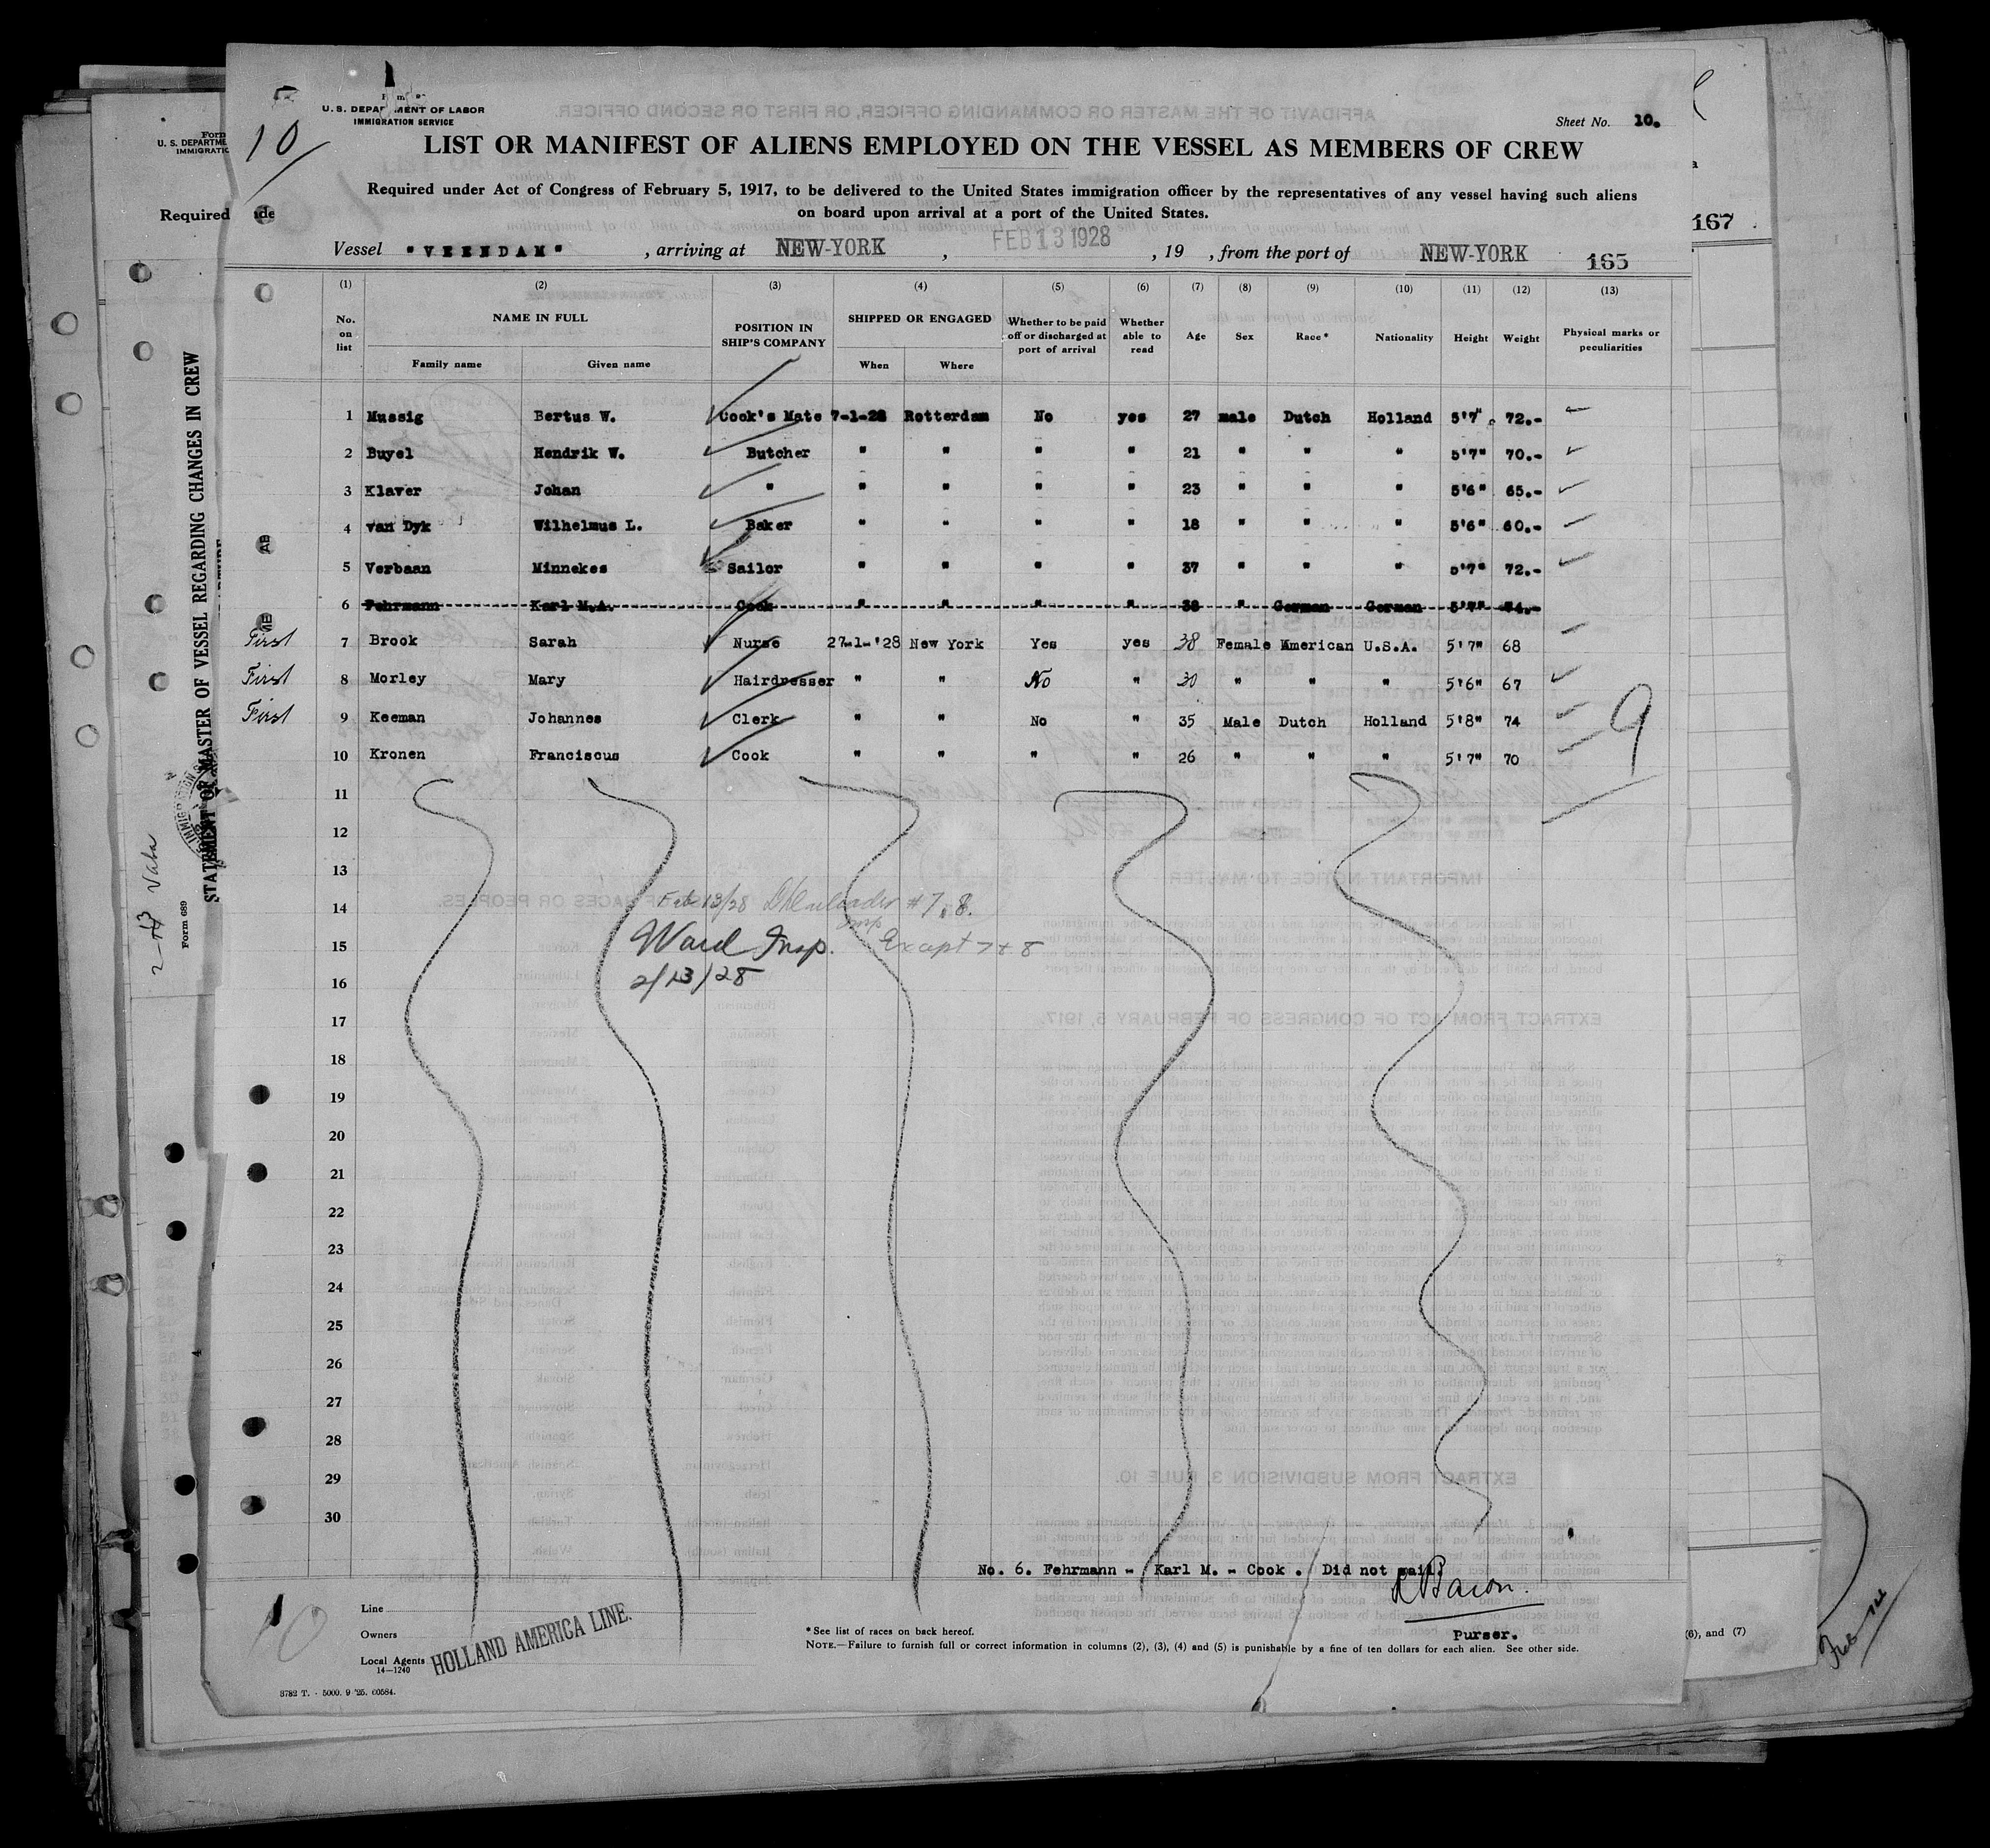 U.S. DEPARTMENT OF LABOR
IMMIGRATION SERVICE
10
Sheet No. 10.
LIST OR MANIFEST OF ALIENS EMPLOYED ON THE VESSEL AS MEMBERS OF CREW
Required under Act of Congress of February 5, 1917, to be delivered to the United States immigration officer by the representatives of any vessel having such aliens
on board upon arrival at a port of the United States.
Vessel "VEENDAM", arriving at NEW-YORK, FEB 13 1928, 19 , from the port of NEW-YORK 165
(1) (2) (3) (4) (5) (6) (7) (8) (9) (10) (11) (12) (13)
No. on list NAME IN FULL Family name Given name POSITION IN SHIP'S COMPANY SHIPPED OR ENGAGED When Where Whether to be paid off or discharged at port of arrival Whether able to read Age Sex Race* Nationality Height Weight Physical marks or peculiarities
1 Mussig Bertus W. Cook's Mate 7-1-28 Rotterdam No yes 27 male Dutch Holland 5'7" 72.-
2 Buyel Hendrik W. Butcher " " " " 21 " " " 5'7" 70.-
3 Klaver Johan " " " " " 23 " " " 5'6" 65.-
4 van Dyk Wilhelmus L. Baker " " " " 18 " " " 5'6" 60.-
5 Verbaan Minnekes Sailor " " " " 37 " " " 5'7" 72.-
6 Fehrmann Karl M.A. Cook " " " " 38 " German German 5'7" 74.-
First 7 Brook Sarah Nurse 27-1-'28 New York Yes yes 38 Female American U.S.A. 5'7" 68
First 8 Morley Mary Hairdresser " " No " 30 " " " 5'6" 67
First 9 Keeman Johannes Clerk " " No " 35 Male Dutch Holland 5'8" 74
10 Kronen Franciscus Cook " " " " 26 " " " 5'7" 70
9
11
12
13
14 Feb 13/28 # 7, 8.
15 Ward Insp. Except 7 + 8
16 2/13/28
17
18
19
20
21
22
23
24
25
26
27
28
29
30
No. 6. Fehrmann - Karl M. - Cook . Did not sail.
Bacon.
Purser.
Line
Owners
Local Agents
HOLLAND AMERICA LINE.
14—1240
*See list of races on back hereof.
NOTE.—Failure to furnish full or correct information in columns (2), (3), (4) and (5) is punishable by a fine of ten dollars for each alien. See other side.
3782 T. - 5000. 9 '25. 60584.
10
Form
U. S. DEPARTME
IMMIGRATIO
Required
167
STATEMENT OF MASTER OF VESSEL REGARDING CHANGES IN CREW
Form 689
(6), and (7)